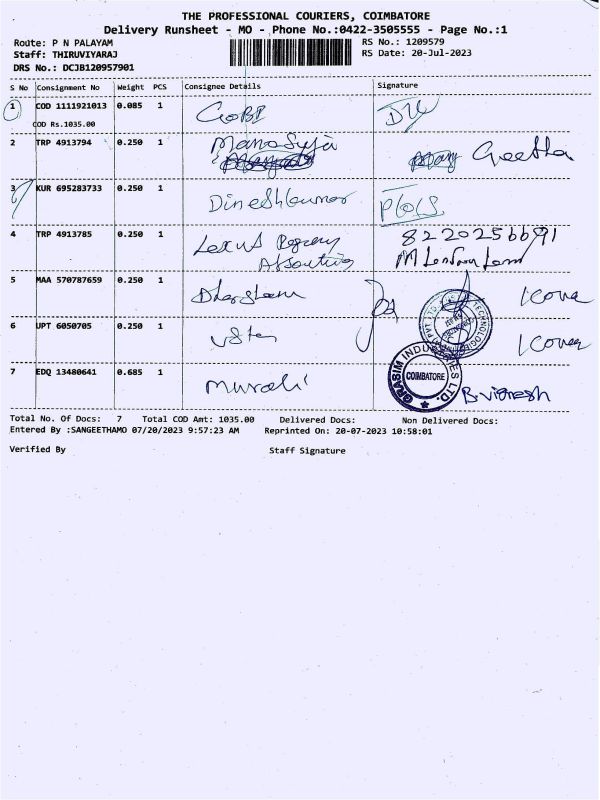 THE PROFESSIONAL COURIERS, COIMBATORE
Delivery Runsheet - MO - Phone No.:0422-3505555 - Page No.:1
Route: P N PALAYAM
Staff: THIRUVIYARAJ
DRS No.: DCJB120957901
RS No.: 1209579
RS Date: 20-Jul-2023
S No Consignment No Weight PCS Consignee Details Signature
1 COD 1111921013 0.085 1 GOBI
COD Rs.1035.00
2 TRP 4913794 0.250 1 Geetha
3 KUR 695283733 0.250 1 Dineshkumar
4 TRP 4913785 0.250 1 Lexus 8220256691
5 MAA 570787659 0.250 1
6 UPT 6050705 0.250 1
7 EDQ 13480641 0.685 1 Murali B.vignesh
GRASIM INDUSTRIES LTD.
COIMBATORE
Total No. Of Docs: 7 Total COD Amt: 1035.00 Delivered Docs: Non Delivered Docs:
Entered By :SANGEETHAMO 07/20/2023 9:57:23 AM Reprinted On: 20-07-2023 10:58:01
Verified By Staff Signature